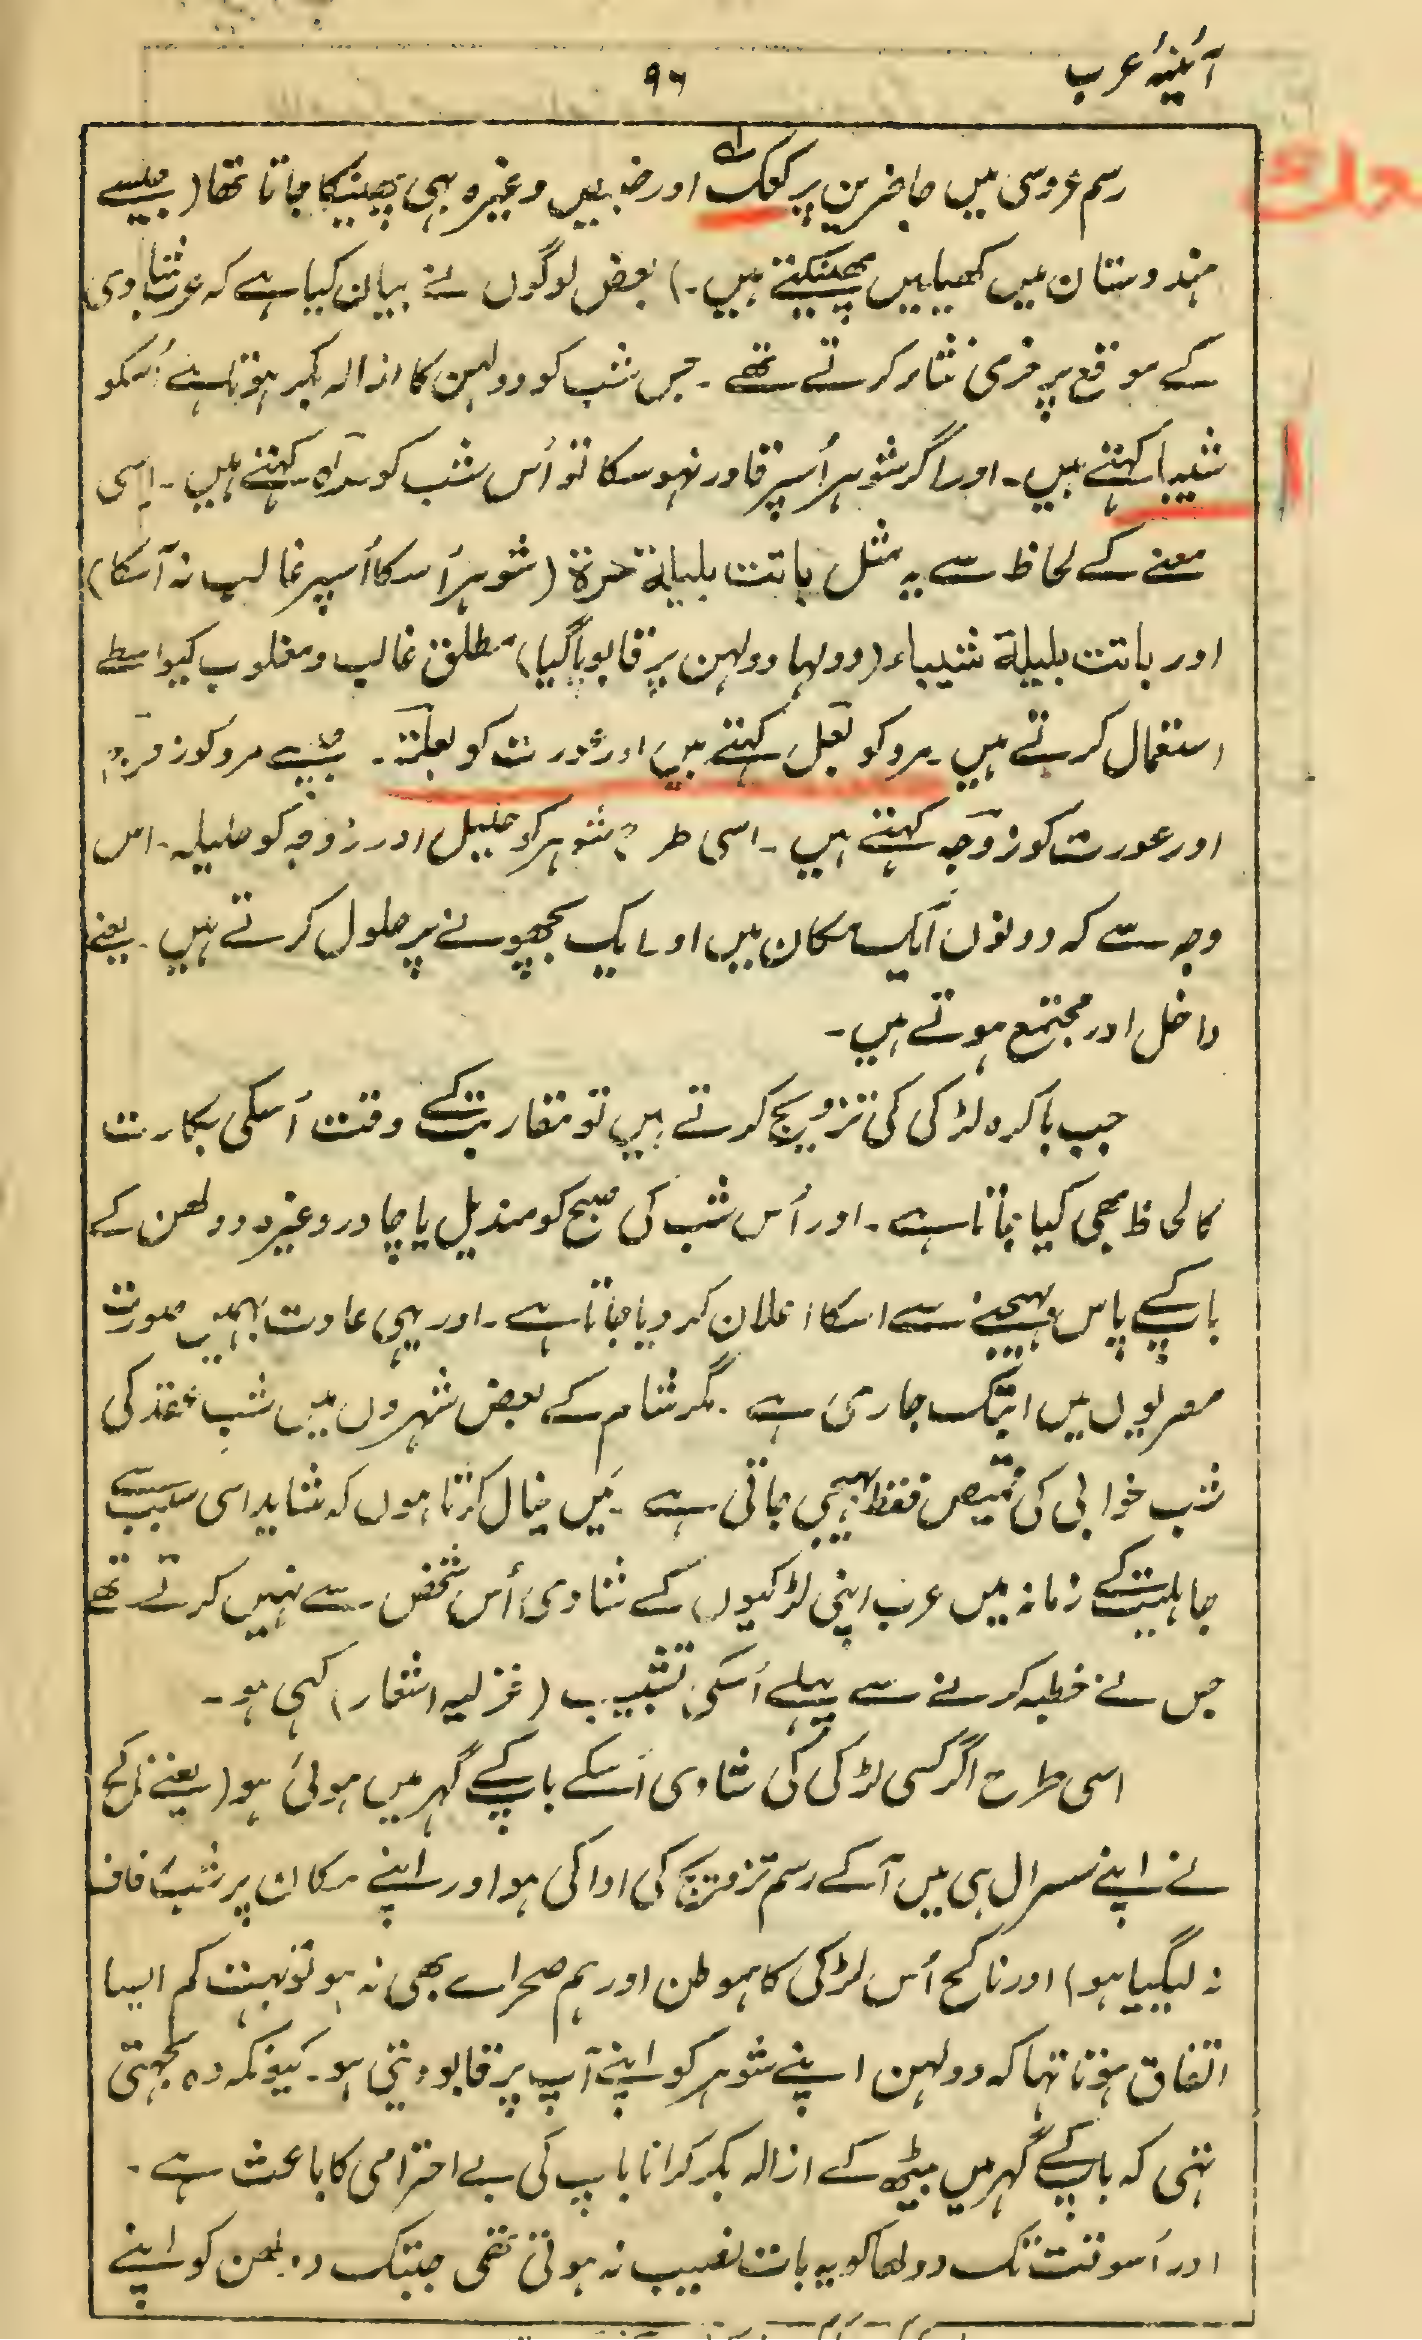 آئینۂ عرب
۹۶
رسم عروسی میں حاضرین پر کعک اور خبیص وغیرہ بہی پھینکا جاتا تھا (جیسے
ہندوستان میں کھیلیں پھینکتے ہیں۔) بعض لوگوں نے بیان کیا ہے کہ عرب شادی
کے موقع پر فری نثار کرتے تھے۔ جس شب کو دولہن کا ازالہ بکر ہوتا ہے اُسکو
شیبا کہتے ہیں۔ اور اگر شوہر اُسپر قادر نہو سکا تو اُس شب کو حرّہ کہتے ہیں۔ اِسی
معنے کے لحاظ سے یہ مثل باتت بلیلة حرة (شوہر اُسکا اُسپر غالب نہ آسکا)
اور باتت بلیلة شیباء (دولہا دولہن پر قابو پا گیا) مطلق غالب و مغلوب کیواسطے
استعمال کرتے ہیں۔ مرد کو بَعل کہتے ہیں اور عورت کو بعلَة۔ جیسے مرد کو زوج
اور عورت کو زوجہ کہتے ہیں۔ اسی طرح شوہر کو حلیل اور زوجہ کو حلیلہ۔ اس
وجہ سے کہ دونوں ایک مکان میں اور ایک بچھونے پر حلول کرتے ہیں۔ یعنے
داخل اور مجتمع ہوتے ہیں۔
جب باکرہ لڑکی کی تزویج کرتے ہیں تو مقاربت کے وقت اُسکی بکارت
کا لحاظ بھی کیا جاتا ہے۔ اور اُس شب کی صبح کو مندیل یا چادر وغیرہ دولھن کے
باپ کے پاس بہیجنے سے اسکا اعلان کر دیا جاتا ہے۔ اور یہی عادت بہمیں صورت
مصریوں میں ابتک جاری ہے۔ مگر شام کے بعض شہروں میں شب عقد کی
شب خوابی کی قمیص فقط بہیجی جاتی ہے۔ میں خیال کرتا ہوں کہ شاید اسی سبب سے
جاہلیت کے زمانہ میں عرب اپنی لڑکیوں کے شادی اُس شخص سے نہیں کرتے تھے
جس نے خطبہ کرنے سے پہلے اُسکی تشبیب (غزلیہ اشعار) کہی ہو۔
اسی طرح اگر کسی لڑکی کی شادی اُسکے باپ کے گہر میں ہوئی ہو (یعنے ناکح
نے اپنے سسرال ہی میں آکے رسم تزویج کی ادا کی ہو اور اپنے مکان پر شب زفاف
نہ لیگیا ہو) اور ناکح اُس لڑکی کا ہموطن اور ہم صحرا سے بھی نہ ہو تو بہت کم ایسا
اتفاق ہوتا تہا کہ دولہن اپنے شوہر کو اپنے آپ پر قابو دیتی ہو۔ کیونکہ وہ سمجہتی
تہی کہ باپ کے گہر میں بیٹھ کے ازالہ بکر کرانا باپ کی بے احترامی کا باعث ہے۔
اور اُسوقت تک دولھا کو یہ بات نصیب نہ ہوتی تھی جبتک دولھن کو اپنے